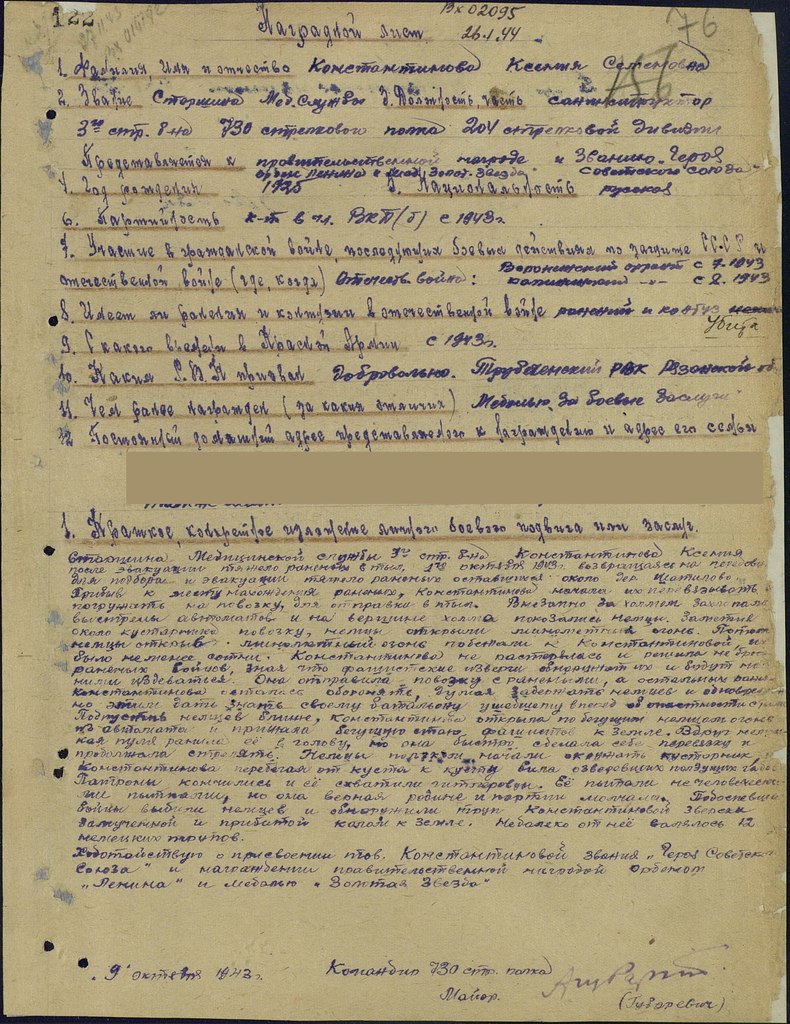 122
Вх 02095
76
Наградной лист.
26.1.44
1. Фамилия, Имя и отчество Константинова Ксения Семеновна
2. Звание Старшина Мед. Службы 3. Должность, часть санинструктор
3го стр. б-на 730 стрелкового полка 204 стрелковой дивизии
Представляется к правительственной награде и Званию "Героя
орден Ленина и мед. Золот. Звезда Советского Союза"
4. Год рождения 1925 5. Национальность русская
6. Партийность к-т в чл. ВКП(б) с 1943г
7. Участие в гражданской войне, последующих боевых действиях по защите СССР и
отечественной войне (где, когда) Отечеств. война: Воронежский фронт с 7.1943
калининский -"- с 8.1943
8. Имеет ли ранения и контузии в отечественной войне ранений и контуз
Убита
9. С какого времени в Красной Армии с 1943г.
10. Каким Р.В.К призван Добровольно. Трубченский РВК Рязанской об.
11. Чем ранее награжден (за какия отличия) Медалью "За боевые заслуги"
12 Постоянный домашний адрес представляемого к награждению и адрес его семьи
1. Краткое, конкретное изложение личного боевого подвига или заслуг.
Старшина Медицинской службы 3го стр. б-на Константинова Ксения
после эвакуации тяжело раненых в тыл, 1го октября 1943г. возвращаясь на передов
для подбора и эвакуации тяжело раненых оставшихся около дер. Шатилово.
Прибыв к месту нахождения раненых, Константинова начала их перевязывать и
погружать на повозку, для отправки в тыл. Внезапно за холмом захлопали
выстрелы автоматов и на вершине холма показались немцы. Заметив
около кустарника повозку, немцы открыли минометный огонь. Потом
немцы открыв огонь побежали к Константиновой их
было не менее сотни. Константинова не растерялась и решила не брос
раненых бойцов, зная что фашистские изверги обнаружат их и будут на
ними издеваться. Она отправила повозку с ранеными, а остальных
Константинова осталась оборонять, думая задержать немцев и одноврем
но этим дать знать своему батальону ушедшему вперед об опасности с
Подпустив немцев ближе, Константинова открыла по бегущим немцам огонь
из автомата и прижала бегущую стаю фашистов к земле. Вдруг
кая пуля ранила её в голову, но она быстро сделала себе перевязку и
продолжала стрелять. Немцы ползком начали окружать кустарник.
Константинова перебегая от куста к кусту била озверевших ползущих гадов
Патроны кончились и её схватили гитлеровцы. Её пытали нечеловечес
ми пытками, но она верная родине и партии молчала. Подоспевш
бойцы выбили немцев и обнаружили труп Константиновой зверски
замученной и прибитой колом к земле. Недалеко от неё валялось 12
немецких трупов.
Ходотайствую о присвоении тов. Константиновой звания "Героя Советск
Союза" и награждении правительственной наградой Орденом
"Ленина" и медалью "Золотая Звезда"
9 октября 1943г. Командир 730 стр. полка
Майор.
(Гударевич)